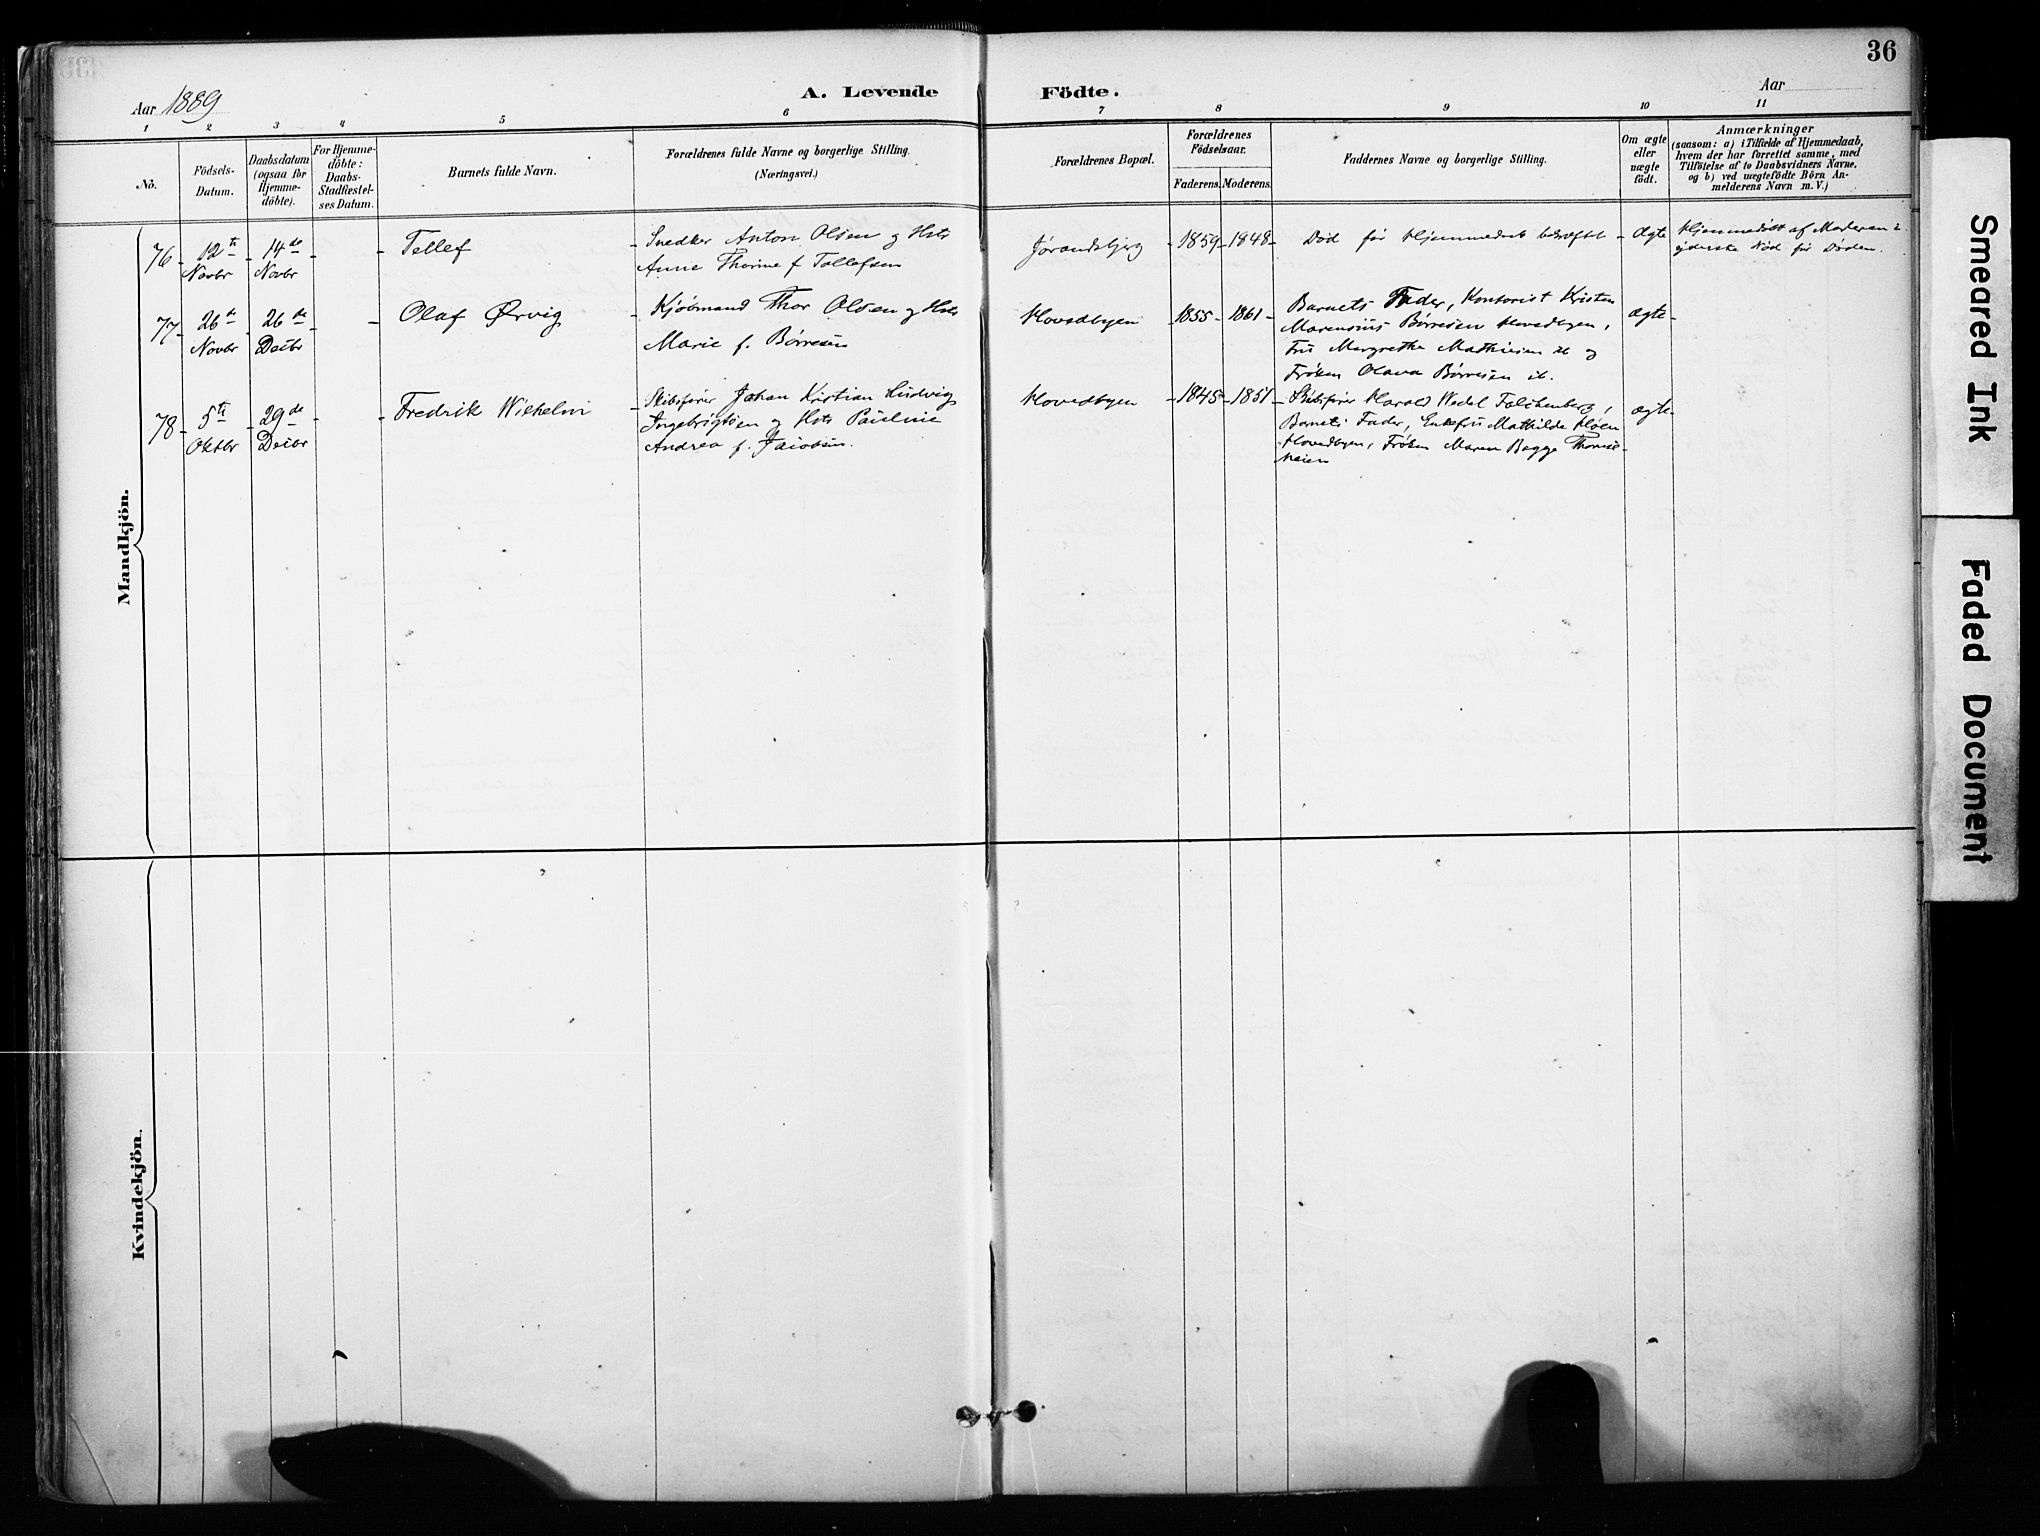 36
Aar 1889
A. Levende Födte.
Aar
1 2 3 4 5 6 7 8 9 10 11
No.
Födsels-
Datum.
Daabsdatum
(ogsaa for
Hjemme-
döbte).
For Hjemme-
döbte:
Daabs-
Stadfæstel-
ses Datum.
Barnets fulde Navn.
Forældrenes fulde Navne og borgerlige Stilling.
(Næringsvei.)
Forældrenes Bopæl.
Forældrenes
Födselsaar.
Faderens. Moderens.
Faddernes Navne og borgerlige Stilling.
Om ægte
eller
uægte
født.
Anmærkninger
(saasom: a) i Tilfælde af Hjemmedaab,
hvem der har forrettet samme, med
Tilföielse af to Daabsvidners Navne.
og b) ved uægtefödte Börn An-
melderens Navn m.V.)
Mandkjön.
76
12te
Novbr
14de
Novbr
Tellef
Snedker Anton Olsen og Hstr
Anne Thorine f Tallefsen
Jørandsbjerg
1859 1848
Død før Hjemmedaab bekræftet
Ægte
Hjemmedøbt af Moderen i
yderste Nød før Døden.
77
26de
Novbr
26de
Decbr
Olaf Ørvig
Kjøbmand Thor Olsen og Hstr
Marie f. Børresen
Hovedbyen
1855 1861
Barnets Fader, Kontorist Kristen
Marensius Børresen Hovedbyen,
Fru Margrethe Mathiesen ib og
Frøken Olava Børresen ib.
ægte
78
5te
Oktbr
29de
Decbr
Fredrik Wilhelm
Skibsfører Johan Kristian Ludvig
Ingebrigtsen og Hstr Pauline
Andrea f. Jacobsen.
Hovedbyen
1845 1851
Skibsfører Harald Wedel Falchenberg,
Barnets Fader, Enkefru Mathilde Kløen
Hovedbyen, Frøken Maren Bagge
ægte
Kvindekjön.
Smeared Ink
Faded Document